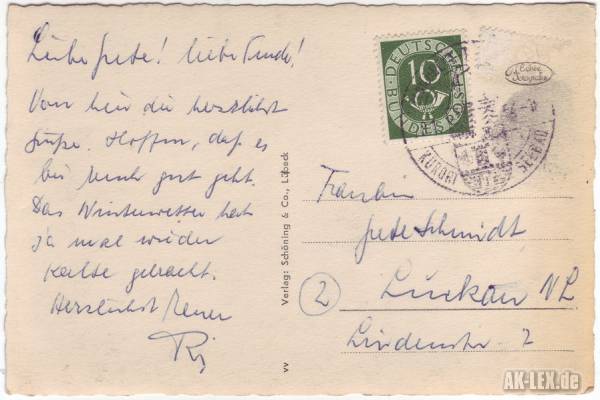 Liebe Grete! Liebe Trude!
Von hier die herzlichst
Grüße. Hoffen, daß es
bei Euch gut geht.
Das Winterwetter hat
ja mal wieder
Kälte gebracht.
Herzlichst
Verlag: Schöning & Co., Lübeck
VV
DEUTSCHE BUNDESPOST
10
KURORT
SEEBAD
Echte Fotografie
Fräulein
Grete Schmidt
2
Luckau NL
Lindenstr. 2
AK-LEX.de